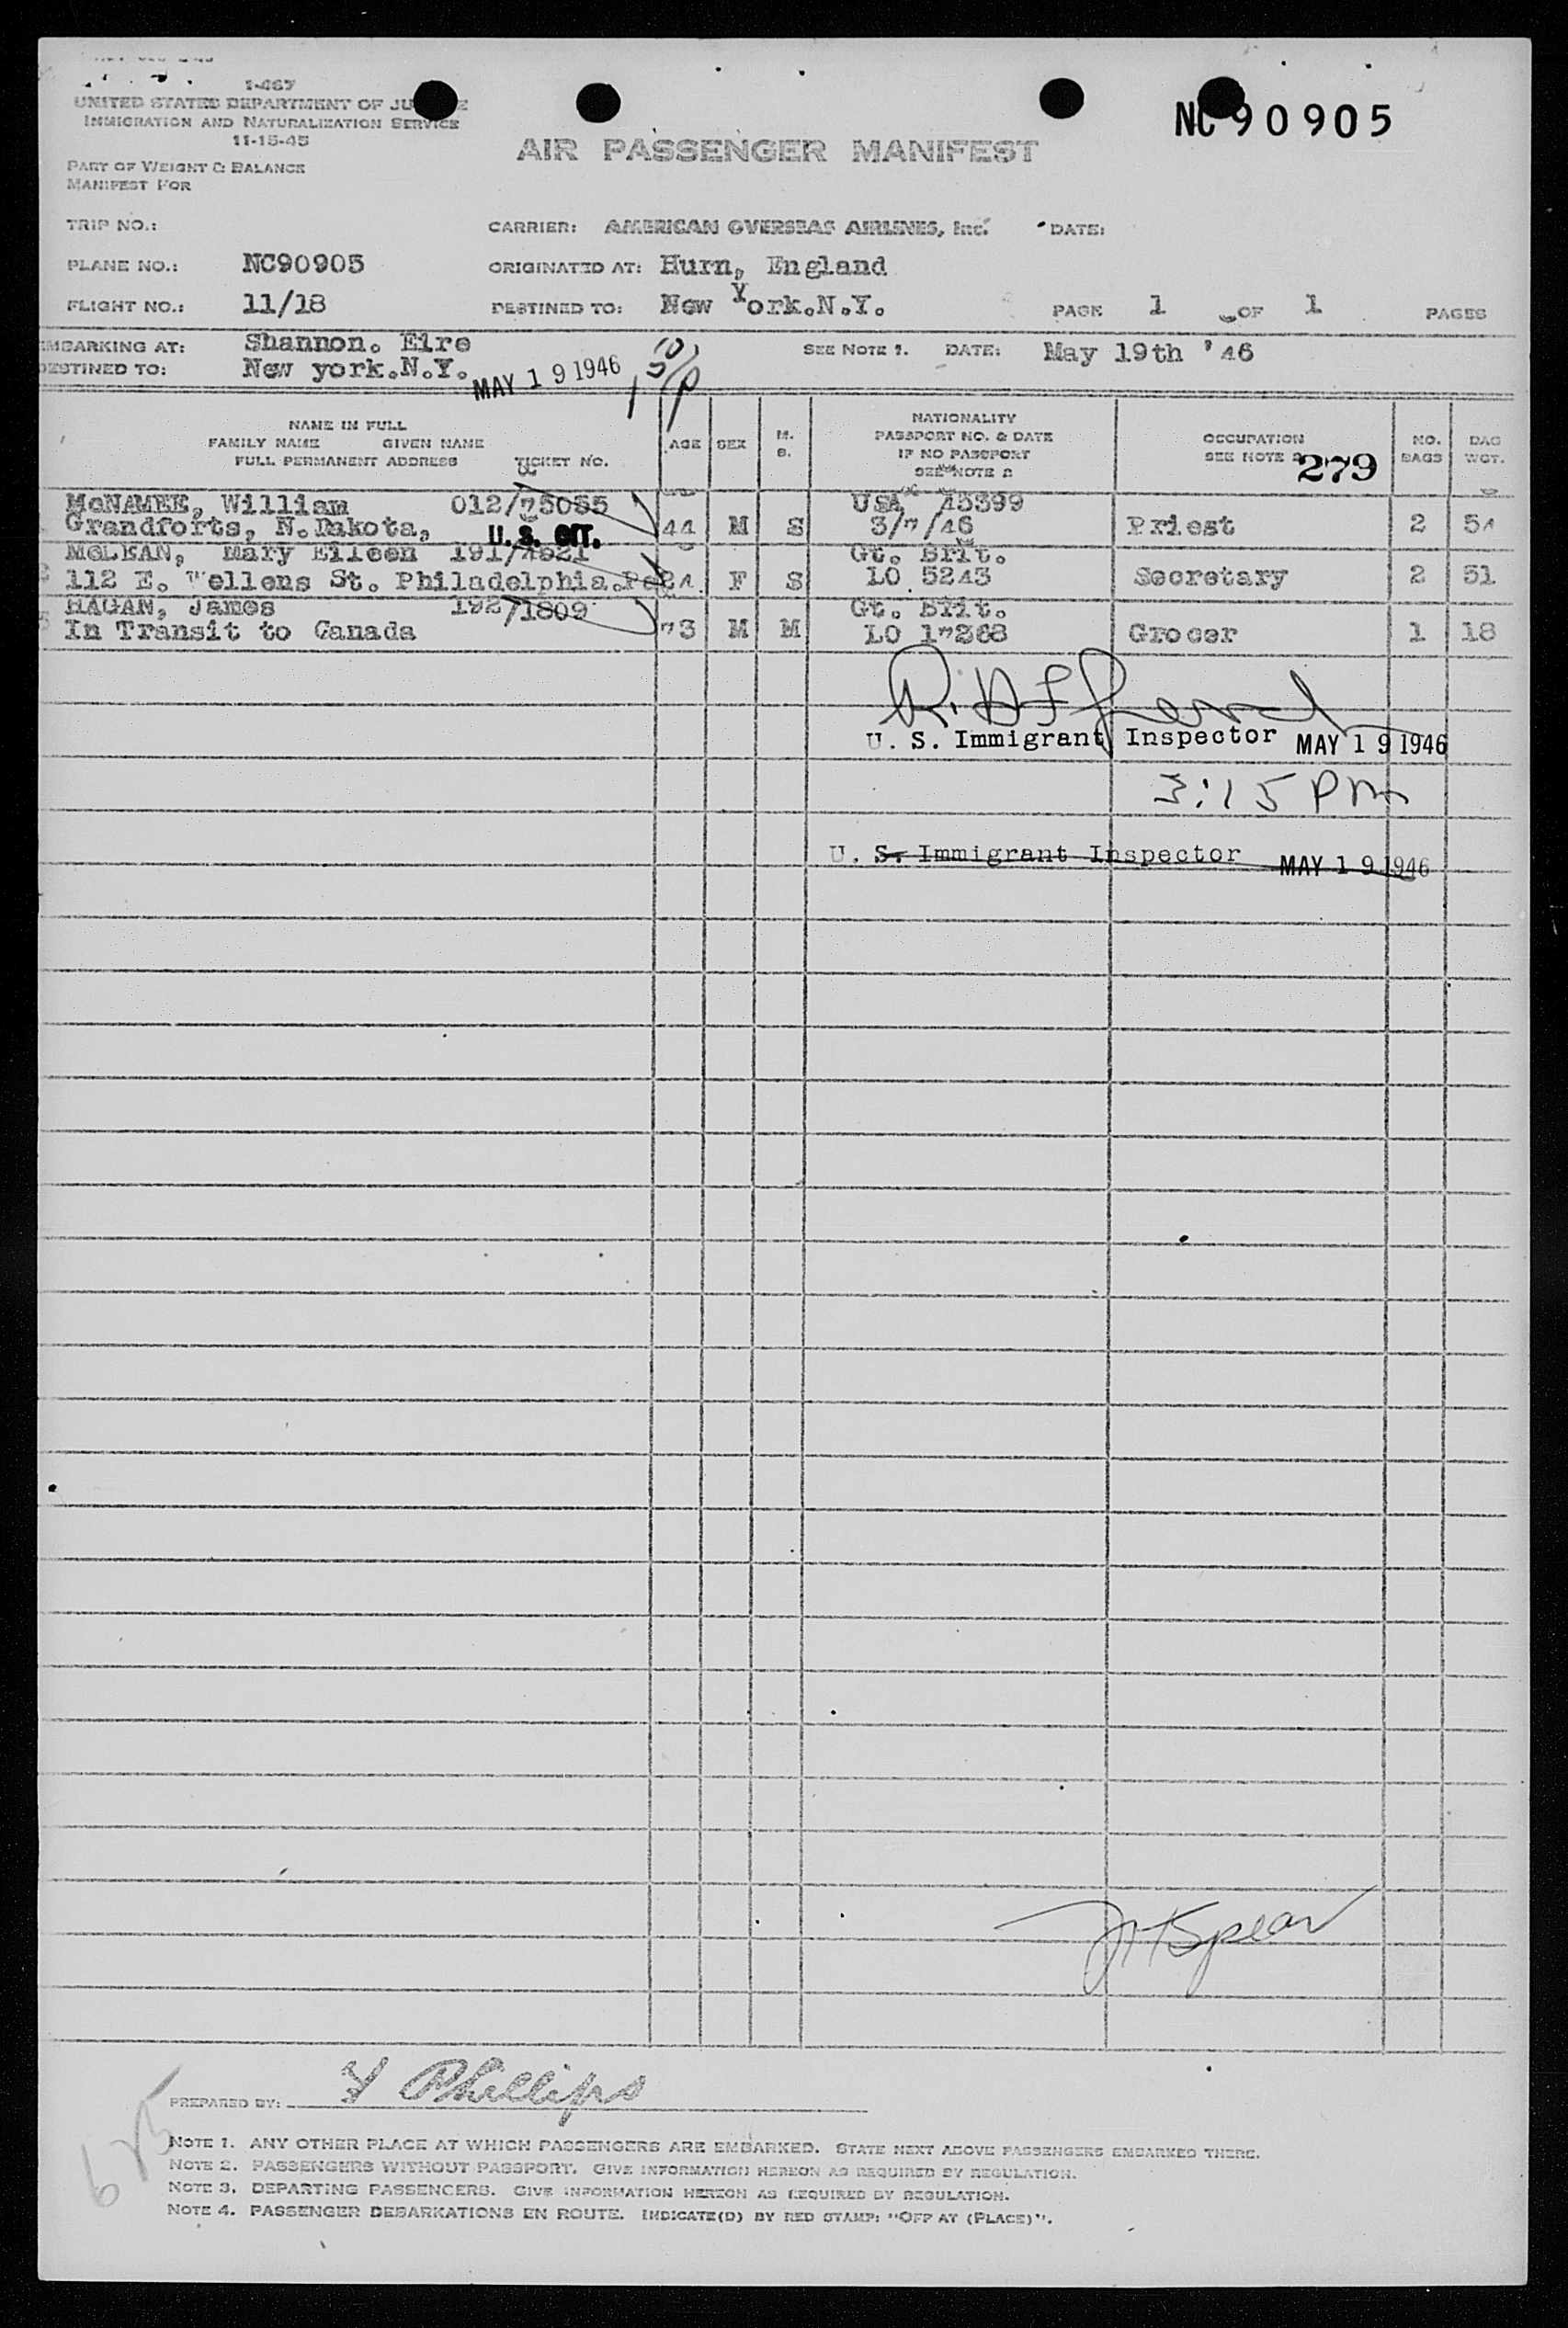 I-467
UNITED STATES DEPARTMENT OF
IMMIGRATION AND NATURALIZATION SERVICE
11-15-45
NC90905
AIR PASSENGER MANIFEST
PART OF WEIGHT & BALANCE
MANIFEST FOR
TRIP NO.: CARRIER: AMERICAN OVERSEAS AIRLINES, Inc. DATE:
PLANE NO.: NC90905 ORIGINATED AT: Hurn, England
FLIGHT NO.: 11/18 DESTINED TO: New York.N.Y. PAGE 1 OF 1 PAGES
EMBARKING AT: Shannon. Eire SEE NOTE 1. DATE: May 19th '46
DESTINED TO: New york.N.Y. MAY 19 1946
NAME IN FULL
FAMILY NAME GIVEN NAME
FULL PERMANENT ADDRESS TICKET NO.
AGE SEX M. S.
NATIONALITY
PASSPORT NO. & DATE
IF NO PASSPORT
SEE NOTE 2
OCCUPATION
SEE NOTE 2 279
NO. BAGS
BAG WGT.
McNAMEE, William 012/75085 USA 45399
Grandforts, N.Dakota, U.S. CIT. 44 M S 3/7/46 Priest 2 54
McLEAN, Mary Eileen 191/4821 Gt. Brit.
112 E. Wellens St. Philadelphia.Pa 24 F S LO 5243 Secretary 2 51
HAGAN, James 192/1809 Gt. Brit.
In Transit to Canada 73 M M LO 17268 Grocer 1 18
U. S. Immigrant Inspector MAY 19 1946
3:15 PM
U. S. Immigrant Inspector MAY 19 1946
Spear
PREPARED BY: Phillips
NOTE 1. ANY OTHER PLACE AT WHICH PASSENGERS ARE EMBARKED. STATE NEXT ABOVE PASSENGERS EMBARKED THERE.
NOTE 2. PASSENGERS WITHOUT PASSPORT. GIVE INFORMATION HEREON AS REQUIRED BY REGULATION.
NOTE 3. DEPARTING PASSENGERS. GIVE INFORMATION HEREON AS REQUIRED BY REGULATION.
NOTE 4. PASSENGER DEBARKATIONS EN ROUTE. INDICATE(D) BY RED STAMP: "OFF AT (PLACE)".